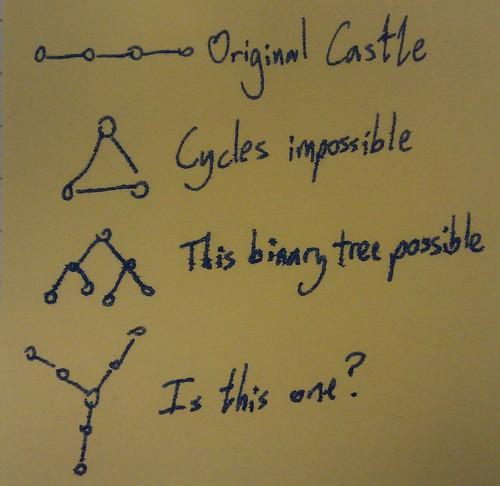 Original Castle
Cycles impossible
This binary tree possible
Is this one?